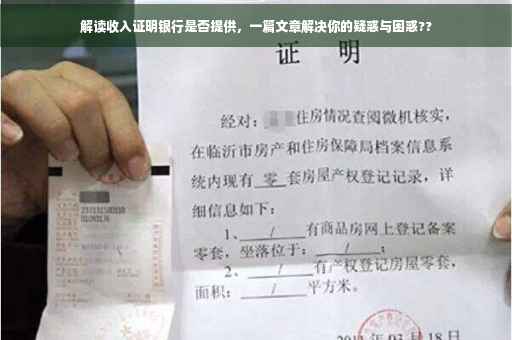 解读收入证明银行是否提供，一篇文章解决你的疑惑与困惑??
证 明
经对：住房情况查阅微机核实，
在临沂市房产和住房保障局档案信息系
统内现有 零 套房屋产权登记记录，详
细信息如下：
1、 / 有商品房网上登记备案
零套，坐落位于： / ；
2、 / 有产权登记房屋零套，
面积： / 平方米。
03月18日